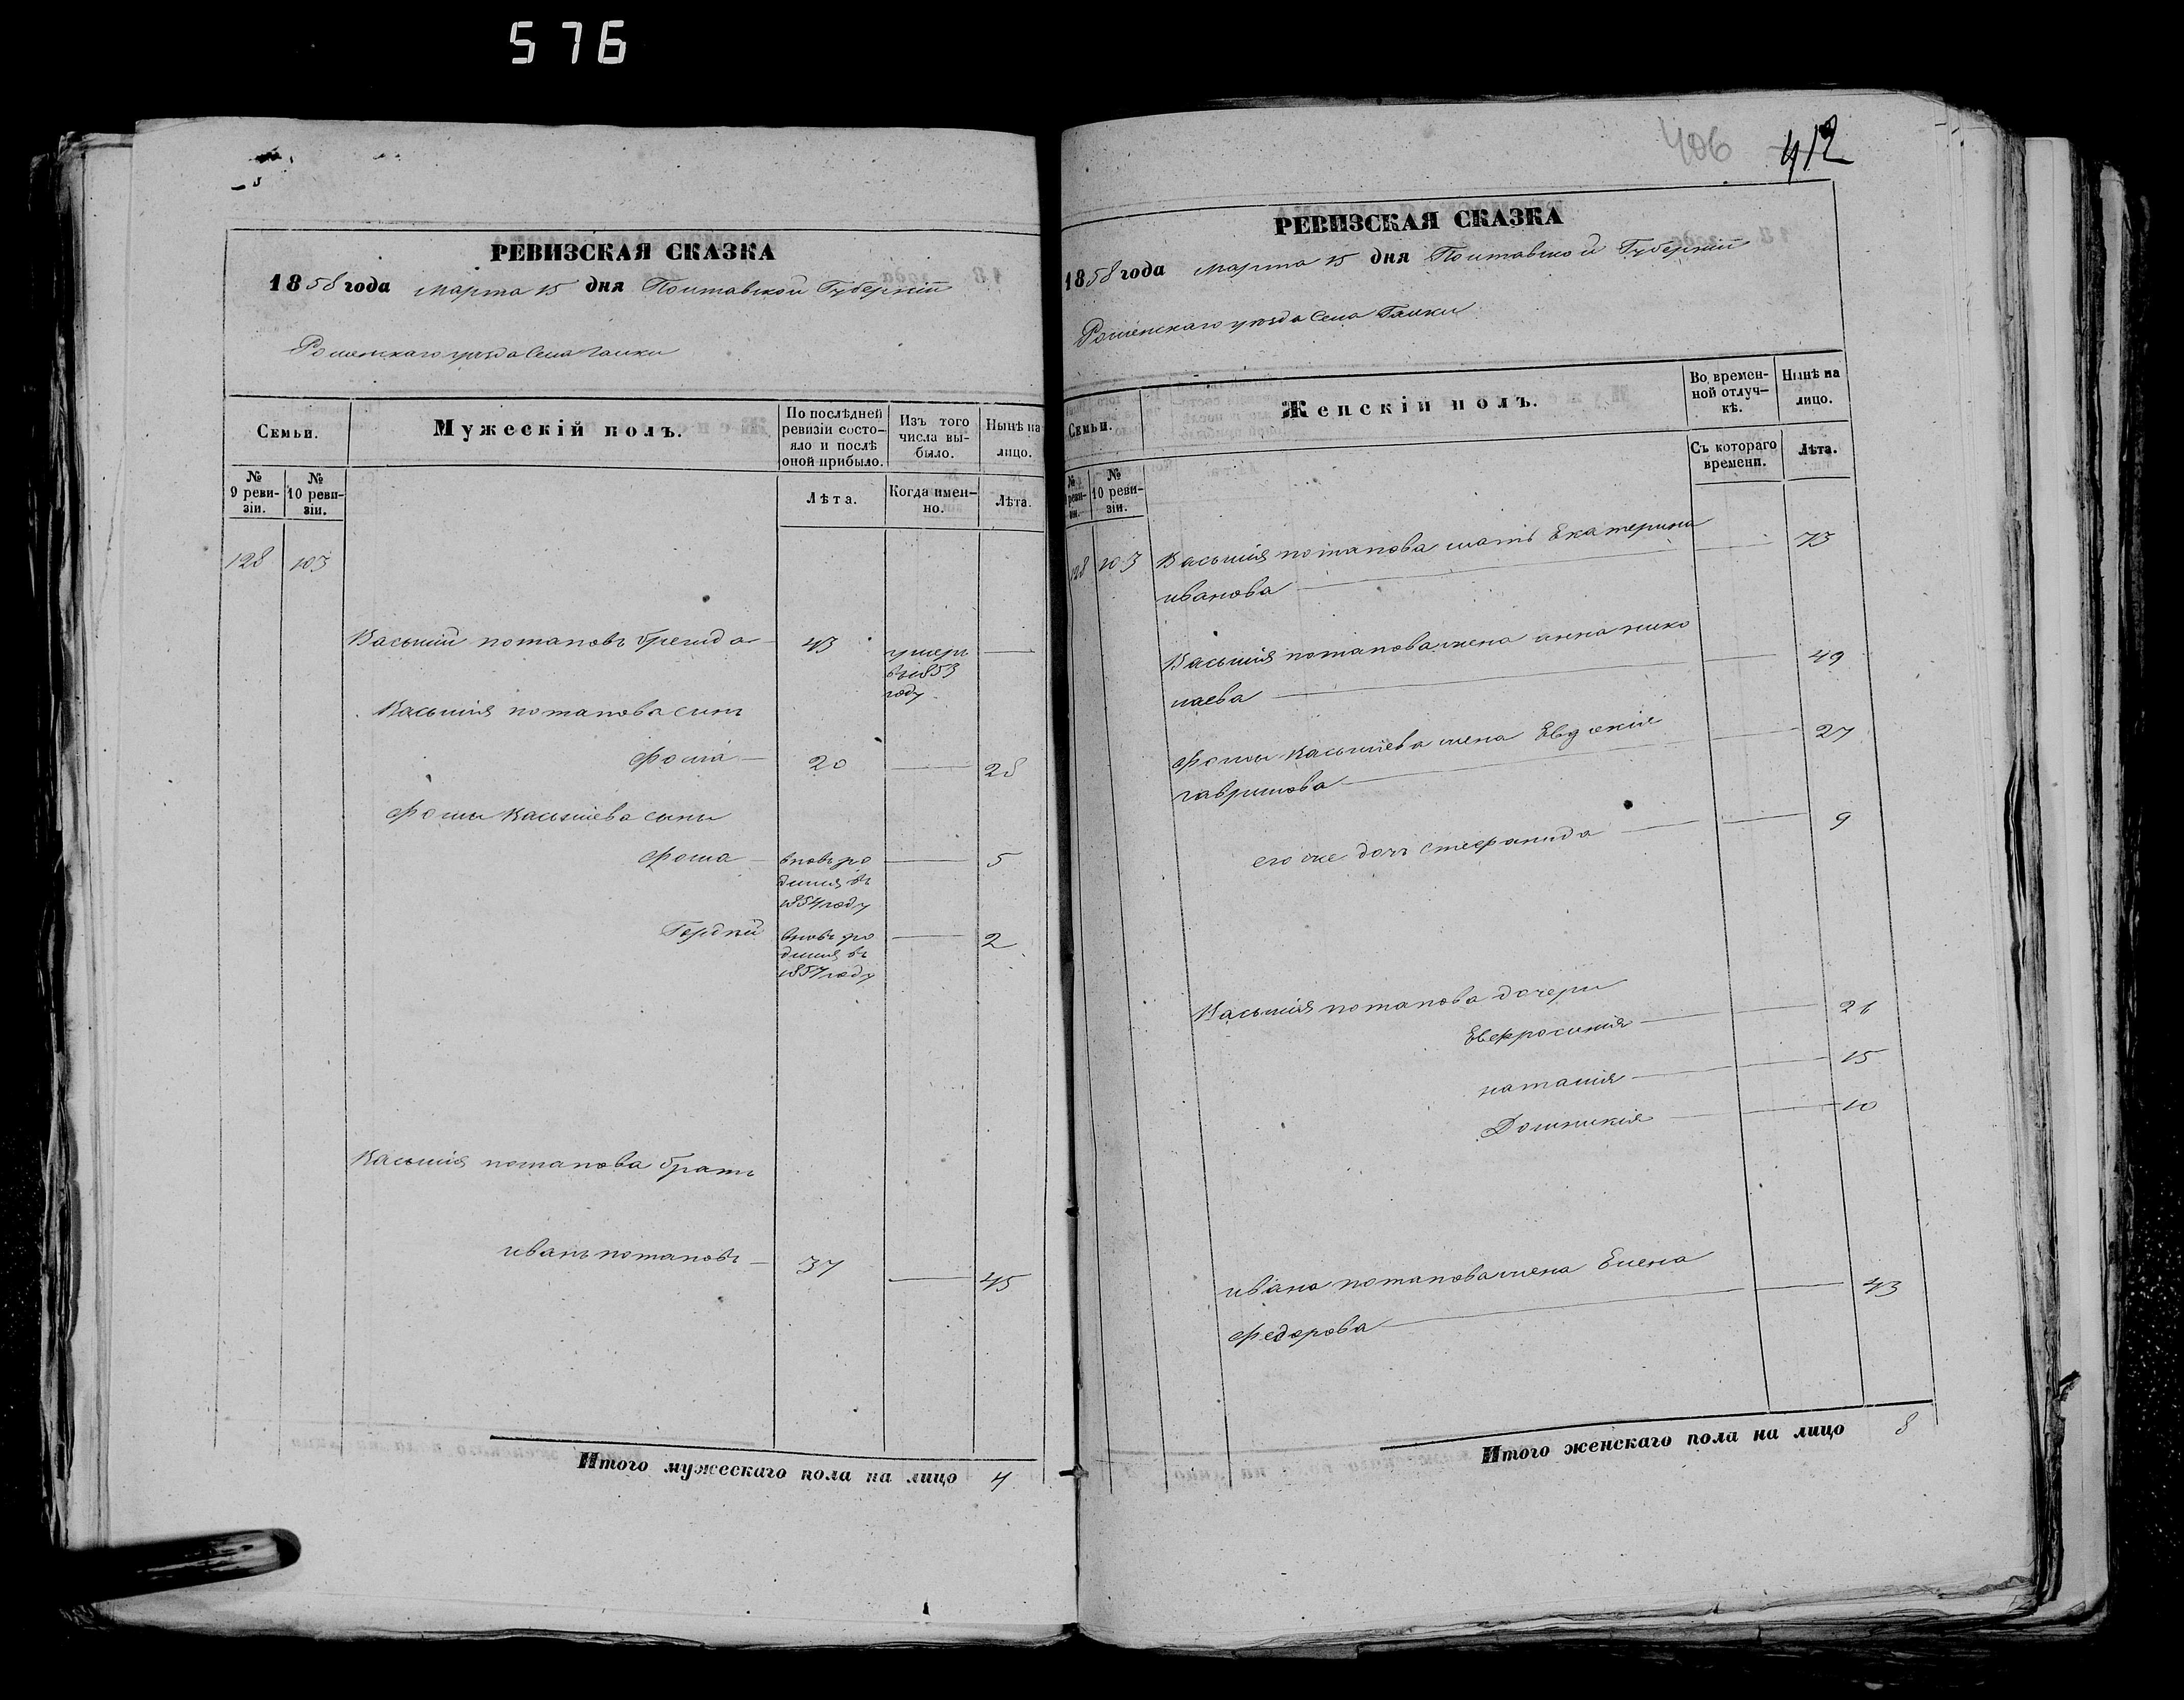 576
РЕВИЗСКАЯ СКАЗКА
1858 года марта 15 дня Полтавской Губерніи
Роменскаго уезда Села Галки
Семьи.
Мужескій полъ.
По послѣдней ревизіи состояло и послѣ оной прибыло.
Изъ того числа выбыло.
Нынѣ на лицо.
№ 9 ревизіи.
№ 10 ревизіи.
Лѣта.
Когда именно.
Лѣта.
128 103
Василий потаповъ 43 умеръ —
въ 1853
году
Василия потапова сынъ
Фома — 20 — 28
Фомы Васильева сыны
Фома — вновь ро — 5
дился въ
1854 году
Гордей вновь ро — 2
дился въ
1857 году
Василия потапова братъ
иванъ потаповъ — 37 — 45
Итого мужескаго пола на лицо 4
406 412
РЕВИЗСКАЯ СКАЗКА
1858 года марта 15 дня Полтавской Губерніи
Роменскаго уезда Села Галки
Семьи.
Женскій полъ.
Во временной отлучкѣ.
Нынѣ на лицо.
№ 9 ревизіи.
№ 10 ревизіи.
Съ котораго времени.
Лѣта.
128 103 Василия потапова мать Екатерина — 73
иванова —
Василия потапова жена анна нико — 49
лаева —
Фомы Васильева жена Евдокія — 27
гаврилова —
его же дочь стефанида — — 9
Василия потапова дочери
Евфросинія — — 21
наталія — — 15
Домникія — — 10
ивана потапова жена Елена — 43
федорова —
Итого женскаго пола на лицо 8